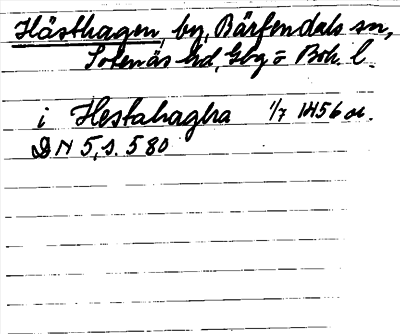 Hästhagen, by, Bärfendals sn,
Sotenäs hd, Gbg o Boh. l.
i Hestahagha 1/7 1456 or.
DN 5, s. 580